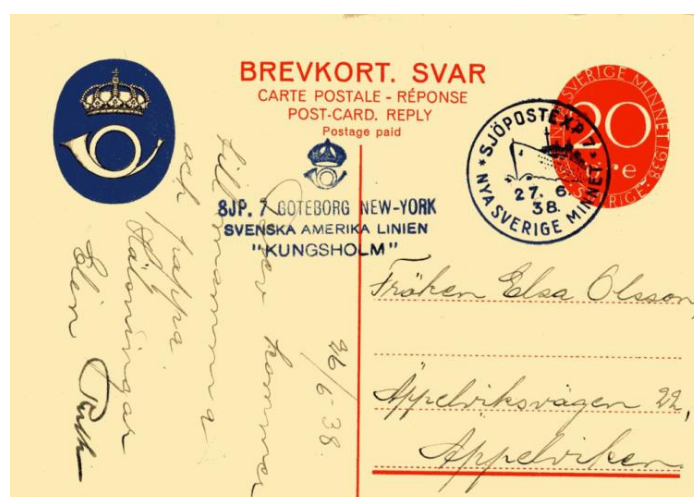 BREVKORT. SVAR
CARTE POSTALE - RÉPONSE
POST-CARD. REPLY
Postage paid
SJP. 7 GÖTEBORG NEW-YORK
SVENSKA AMERIKA LINIEN
"KUNGSHOLM"
SVERIGE MINNET 1938
20
SJÖPOSTEXP. 7
27. 6.
38.
NYA SVERIGE MINNET
Fröken Elsa Olsson,
Äppelviksvägen 22,
Äppelviken.
26/6 38.
Brev kommer
till mamma
och pappa
Hälsningar
Ruth